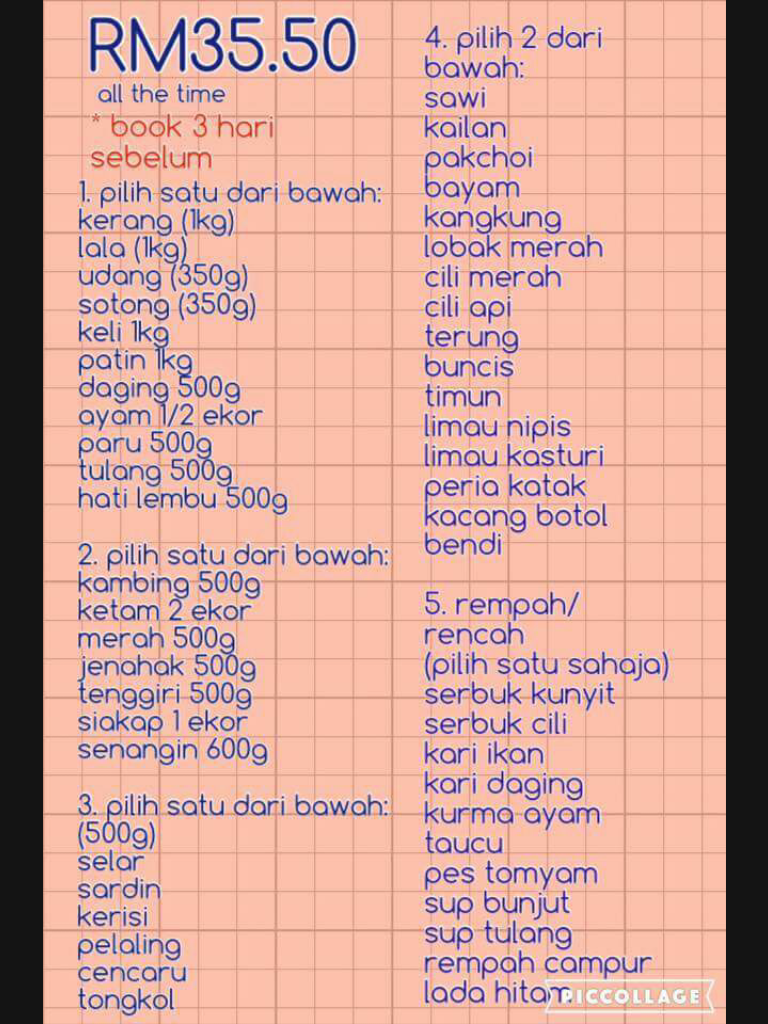 RM35.50
all the time
* book 3 hari
sebelum
1. pilih satu dari bawah:
kerang (1kg)
lala (1kg)
udang (350g)
sotong (350g)
keli 1kg
patin 1kg
daging 500g
ayam 1/2 ekor
paru 500g
tulang 500g
hati lembu 500g
2. pilih satu dari bawah:
kambing 500g
ketam 2 ekor
merah 500g
jenahak 500g
tenggiri 500g
siakap 1 ekor
senangin 600g
3. pilih satu dari bawah:
(500g)
selar
sardin
kerisi
pelaling
cencaru
tongkol
4. pilih 2 dari
bawah:
sawi
kailan
pakchoi
bayam
kangkung
lobak merah
cili merah
cili api
terung
buncis
timun
limau nipis
limau kasturi
peria katak
kacang botol
bendi
5. rempah/
rencah
(pilih satu sahaja)
serbuk kunyit
serbuk cili
kari ikan
kari daging
kurma ayam
taucu
pes tomyam
sup bunjut
sup tulang
rempah campur
lada hitam
PICCOLLAGE